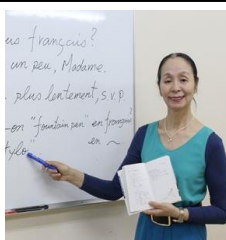 us français?
un peu, Madame.
plus lentement, S.V.P.
-on "fountain pen" en français?
stylo"
en ~